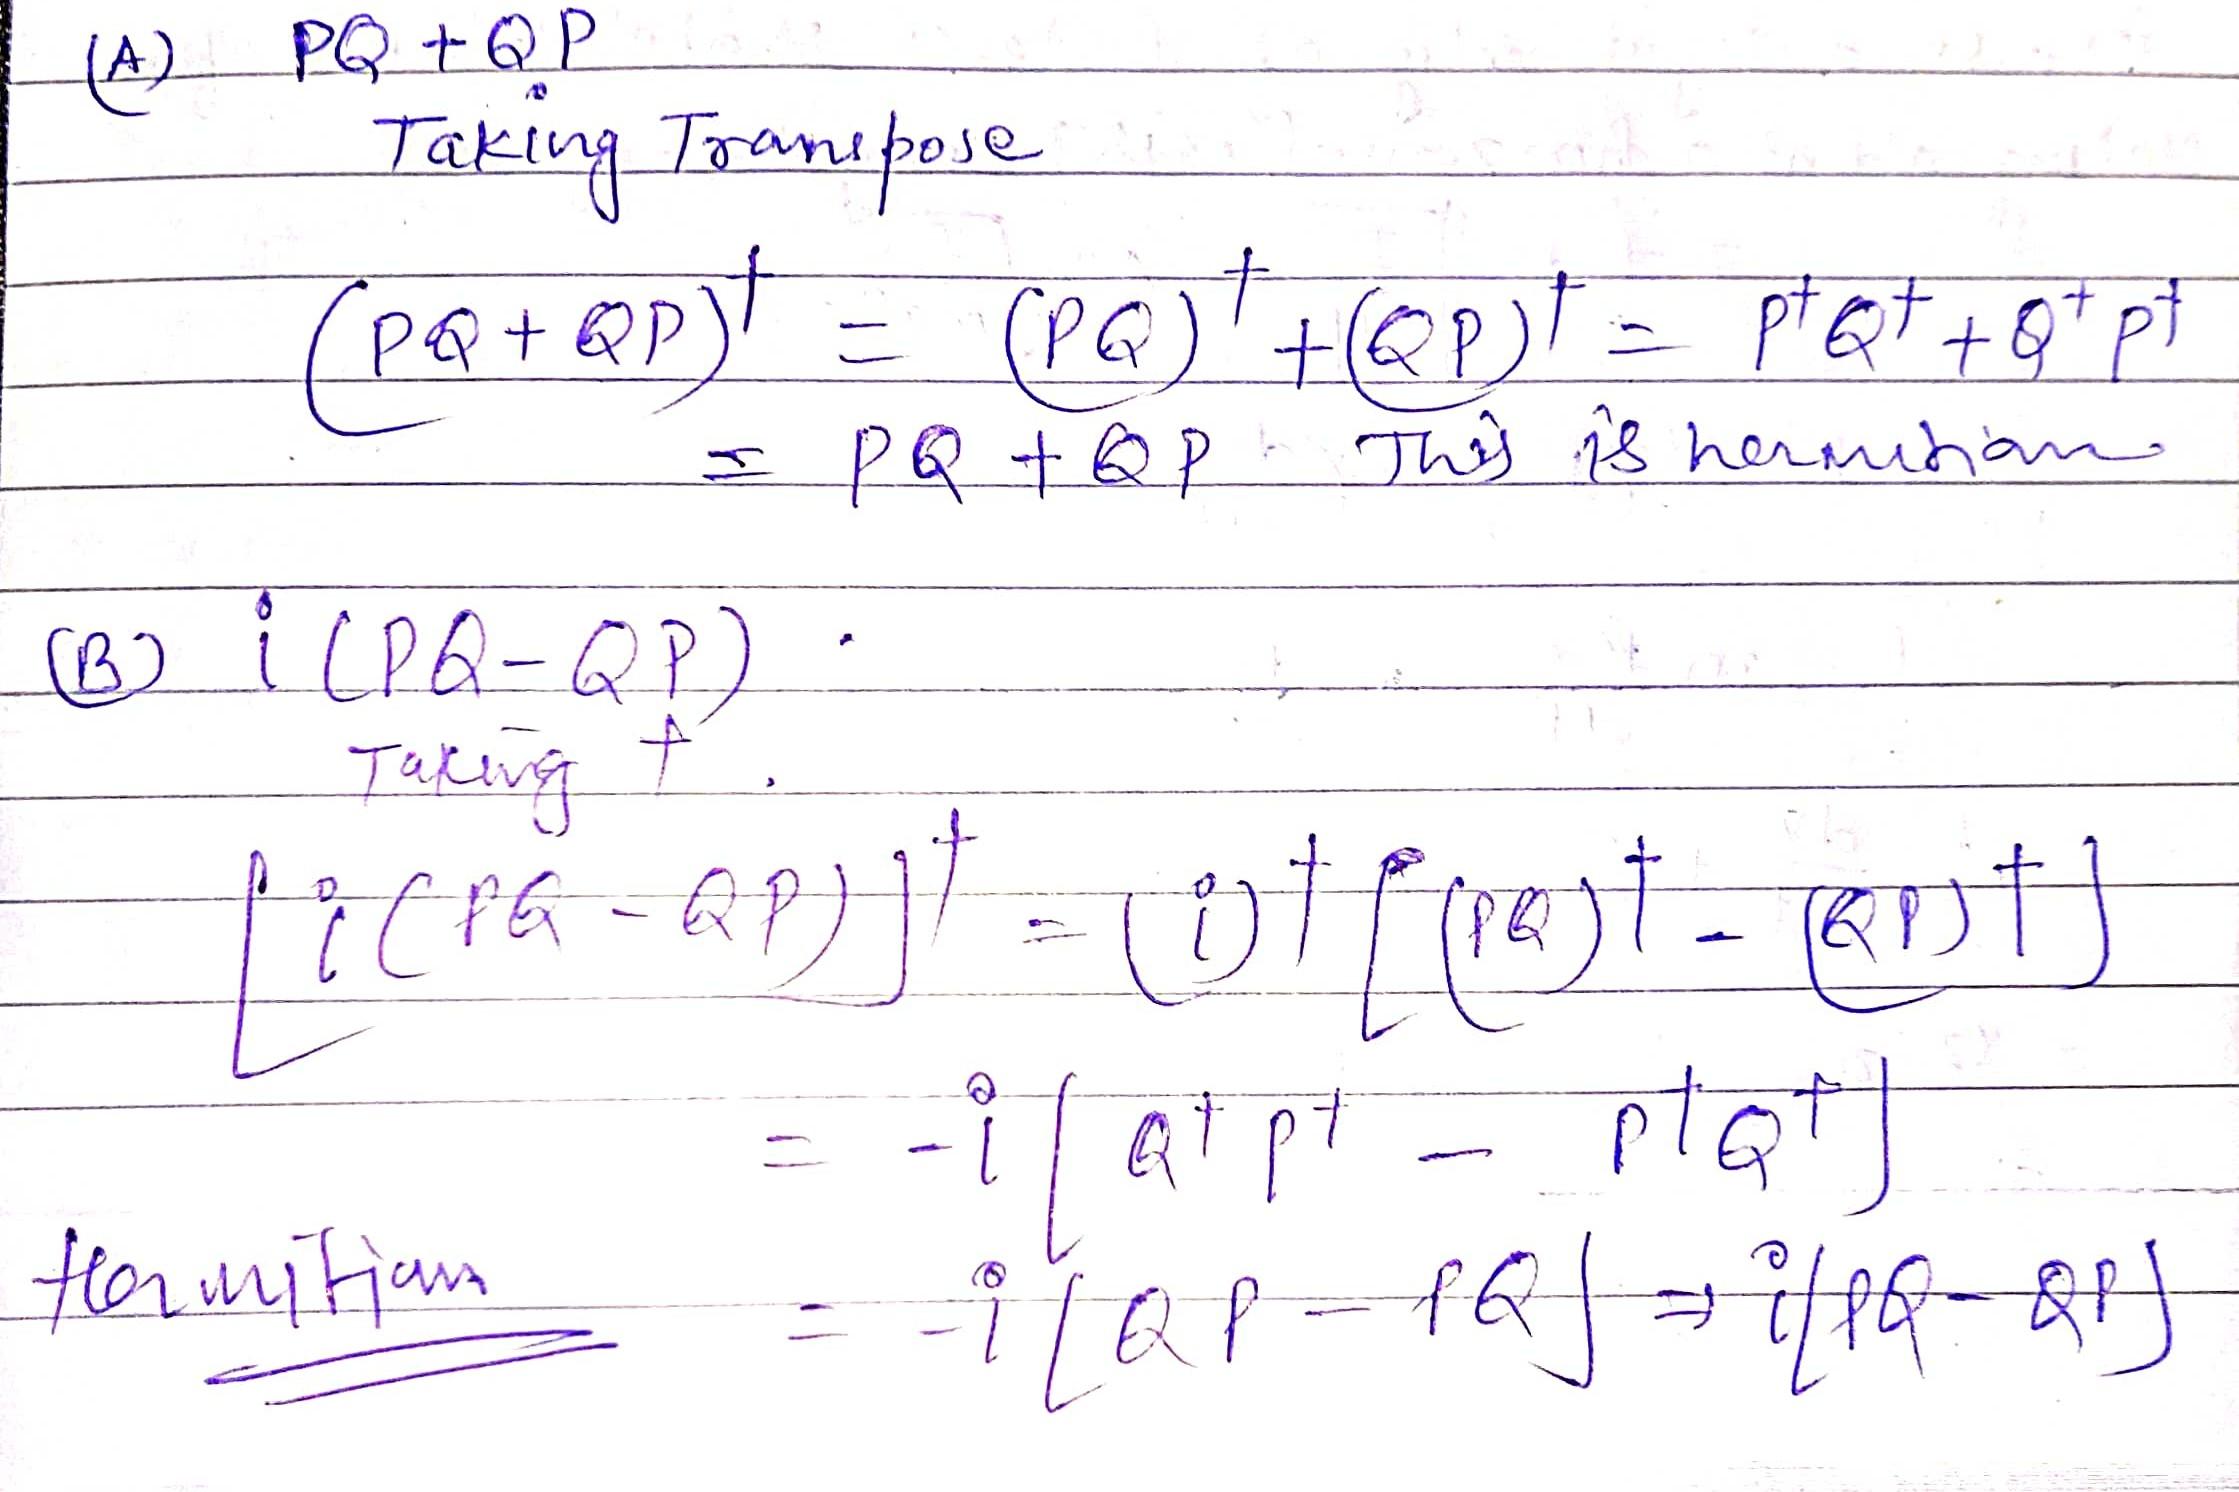 (A) PQ + QP
Taking Transpose
(PQ + QP)† = (PQ)† + (QP)† = P†Q† + Q†P†
= PQ + QP This is hermitian
(B) i (PQ - QP)
Taking †.
[i(PQ - QP)]† = (i)† [(PQ)† - (QP)†]
= -i [Q†P† - P†Q†]
Hermitian = -i [QP - PQ] ⇒ i[PQ - QP]